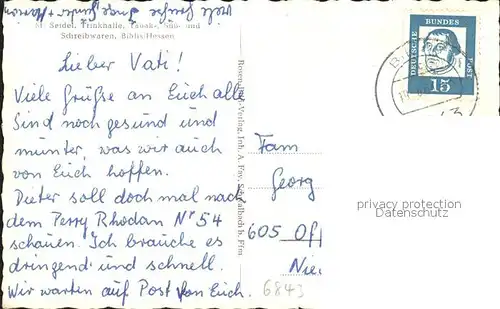 M. Seidel, Trinkhalle, Tabake, Süß- und
Schreibwaren, Biblis/Hessen
Lieber Vati!
Viele Grüße an Euch alle
Sind noch gesund und
munter, was wir auch
von Euch hoffen.
Dieter soll doch mal nach
dem Perry Rhodan Nº 54
schauen. Ich brauche es
dringend und schnell.
Wir warten auf Post von Euch.
Verlag, Inh. A. Fay, b. Ffm
DEUTSCHE
BUNDES
POST
15
Fam
Georg
605 Off
Nie
6843
privacy protection
Datenschutz